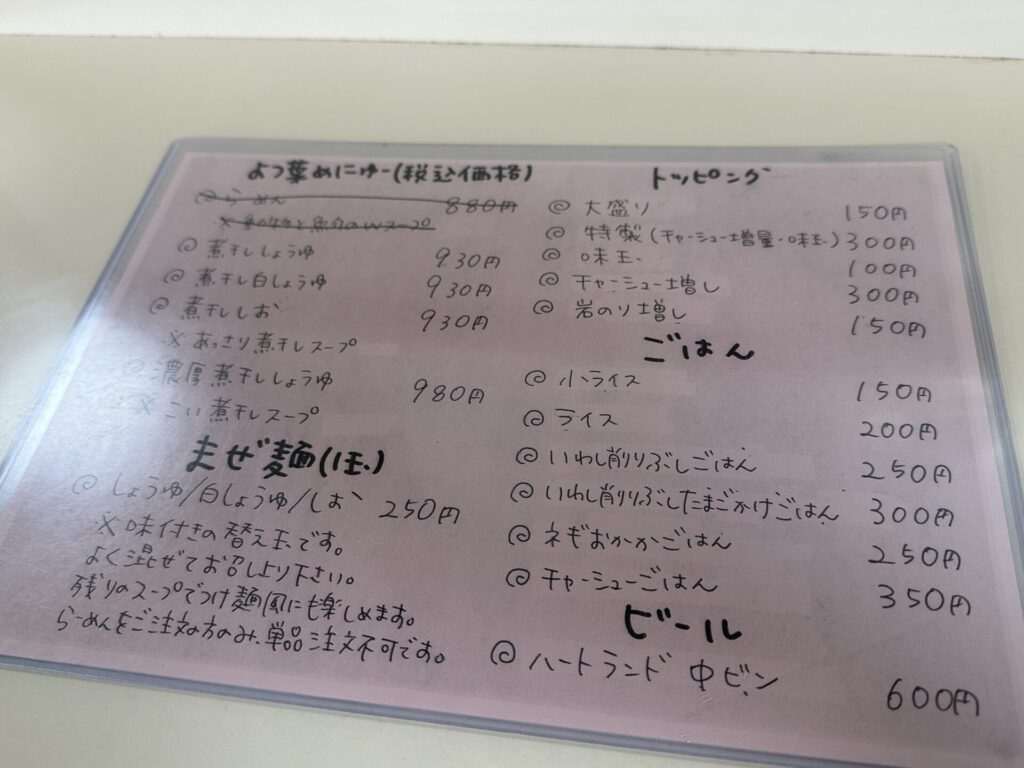 よつ葉めにゅー(税込価格)
◎らーめん 880円
※動物と魚介のWスープ
◎煮干ししょうゆ 930円
◎煮干し白しょうゆ 930円
◎煮干ししお 930円
※あっさり煮干しスープ
◎濃厚煮干ししょうゆ 980円
※こい煮干しスープ
まぜ麺(1玉)
◎しょうゆ/白しょうゆ/しお 250円
※味付きの替え玉です。
よく混ぜてお召し上り下さい。
残りのスープでつけ麺風にも楽しめます。
らーめんをご注文の方のみ、単品注文不可です。
トッピング
◎大盛り 150円
◎特製(チャーシュー増量・味玉) 300円
◎味玉 100円
◎チャーシュー増し 300円
◎岩のり増し 150円
ごはん
◎小ライス 150円
◎ライス 200円
◎いわし削りぶしごはん 250円
◎いわし削りぶしたまごかけごはん 300円
◎ネギおかかごはん 250円
◎チャーシューごはん 350円
ビール
◎ハートランド 中ビン 600円